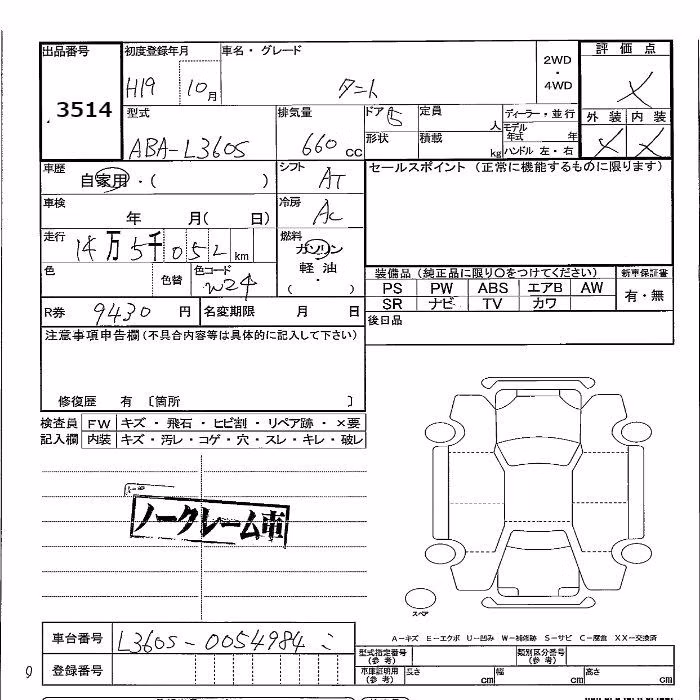 出品番号 初度登録年月 車名・グレード 2WD・4WD 評価点
3514 H19 10月 タント
型式 排気量 ドア 5 定員 人 ディーラー・並行 外装 内装
ABA-L360S 660cc 形状 積載 kg モデル年式 年 ハンドル 左・右
車歴 シフト セールスポイント(正常に機能するものに限ります)
自家用・( ) AT
車検 冷房
年 月( 日) AC
走行 燃料
14万5千052km ガソリン・軽油・( )
色 色替 色コード W24 装備品(純正品に限り○をつけてください) 新車保証書
PS PW ABS エアB AW 有・無
SR ナビ TV カワ
R券 9430円 名変期限 月 日 後日品
注意事項申告欄(不具合内容等は具体的に記入して下さい)
修復歴 有 〔箇所 〕
検査員 FW キズ・飛石・ヒビ割・リペア跡・×要
記入欄 内装 キズ・汚レ・コゲ・穴・スレ・キレ・破レ
ノークレーム車
スペア
A-キズ E-エクボ U-凹み W-補修跡 S-サビ C-腐食 XX-交換済
車台番号 L360S-0054984
型式指定番号(参考) 類別区分番号(参考)
登録番号 車庫証明用(参考) 長さ cm 幅 cm 高さ cm